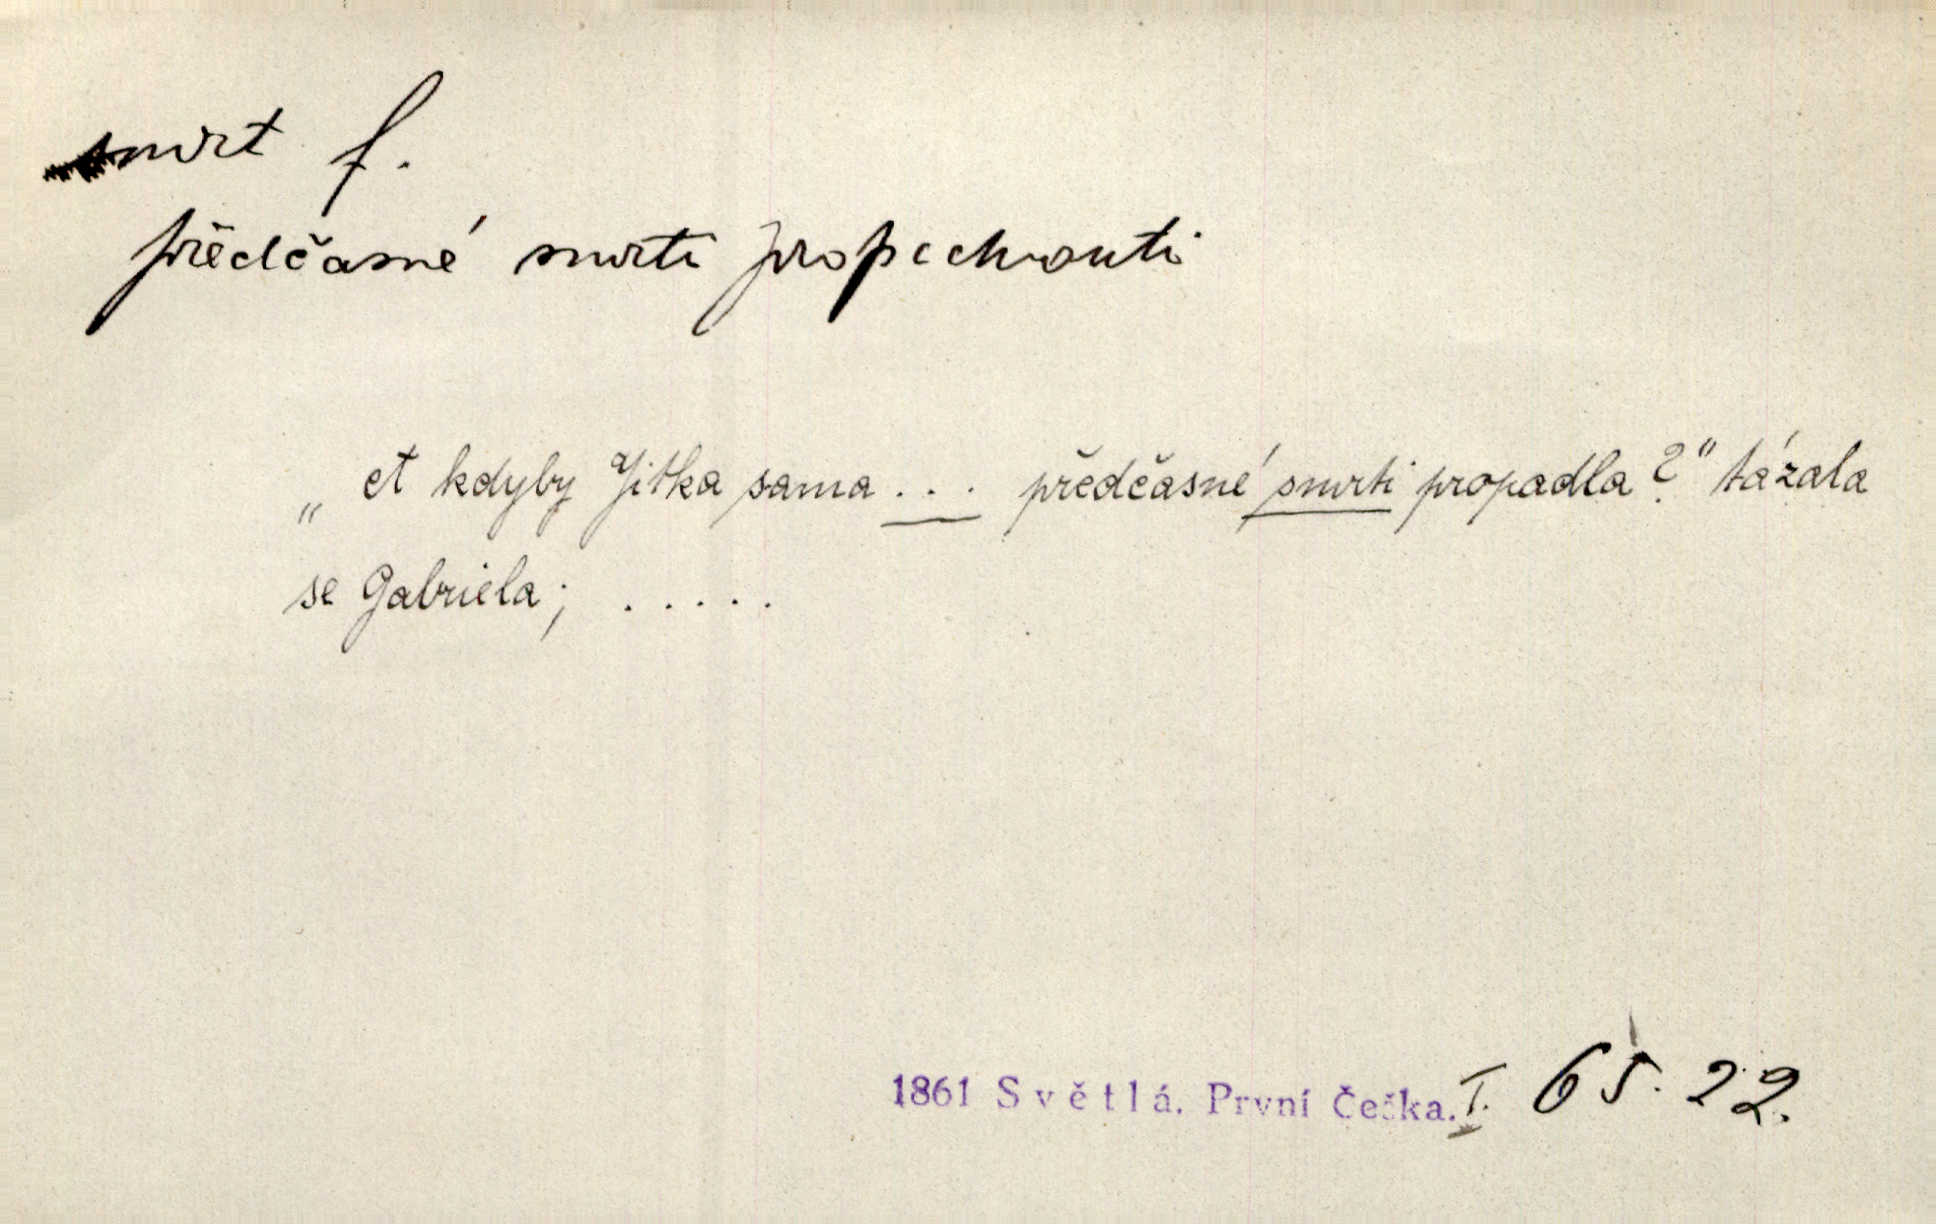 smrt f.
předčasné smrti propadnouti
„A kdyby Jitka sama . . . předčasné smrti propadla?" tázala
se Gabriela; . . . . .
1861 Světlá. První Češka. I. 65. 22.